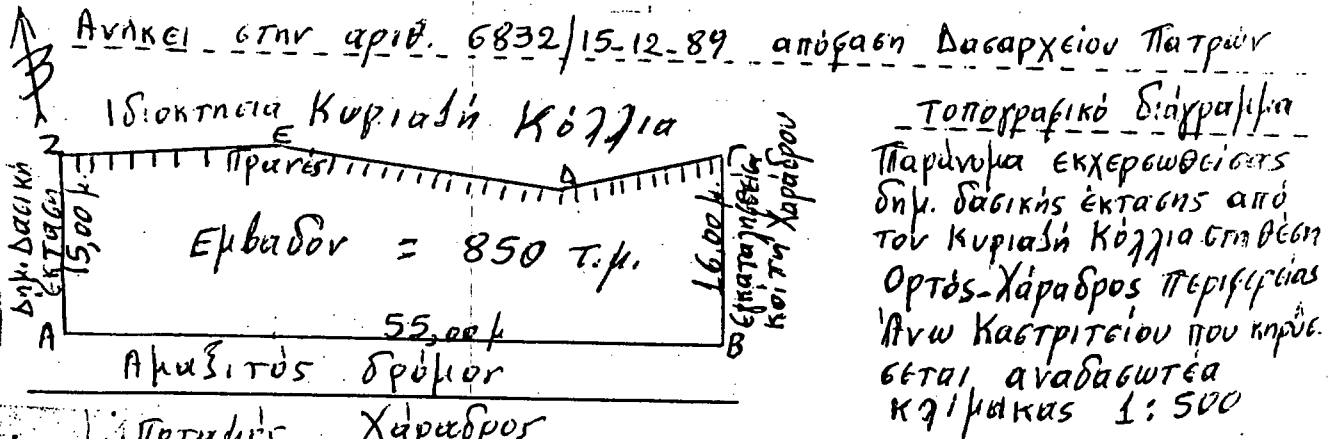 Ανήκει στην αριθ. 6832/15-12-89 απόφαση Δασαρχείου Πατρών
Β
Ιδιοκτησία Κυριαδή Κόλλια
Ζ Ε Δ Γ
Πρανές
Δημ. Δασική
έκταση
15,00 μ.
Εμβαδόν = 850 τ.μ.
16,00 μ.
Εγκαταληφθείσα
κοίτη Χαράδρου
Α 55,00 μ Β
Αμαξιτός δρόμος
Ποταμός Χάραδρος
Τοπογραφικό διάγραμμα
Παράνομα εκχερσωθείσας
δημ. δασικής έκτασης από
τον Κυριαδή Κόλλια στη θέση
Ορτός-Χάραδρος περιφερείας
Άνω Καστριτσίου που κηρύσ-
σεται αναδασωτέα
κλίμακας 1:500